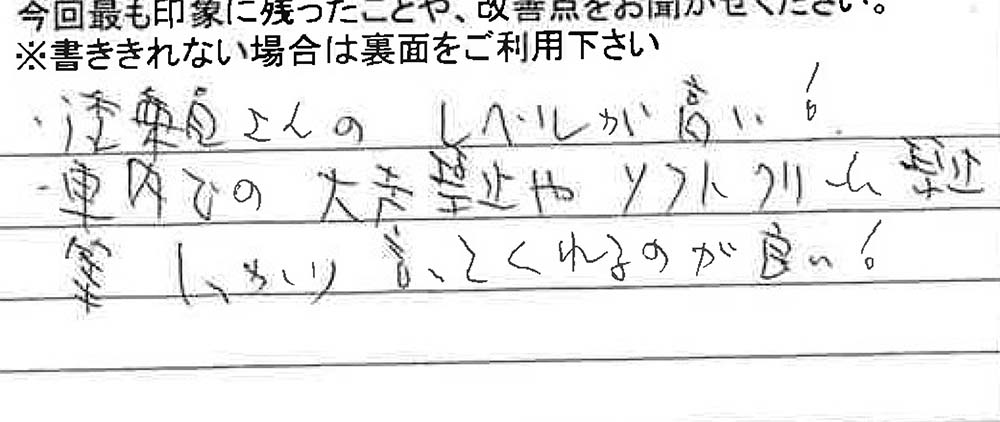 今回最も印象に残ったことや、改善点をお聞かせください。
※書ききれない場合は裏面をご利用下さい
・添乗員さんのレベルが高い!
・車内での大声禁止やソフトクリーム禁止
等しっかり言ってくれるのが良い!